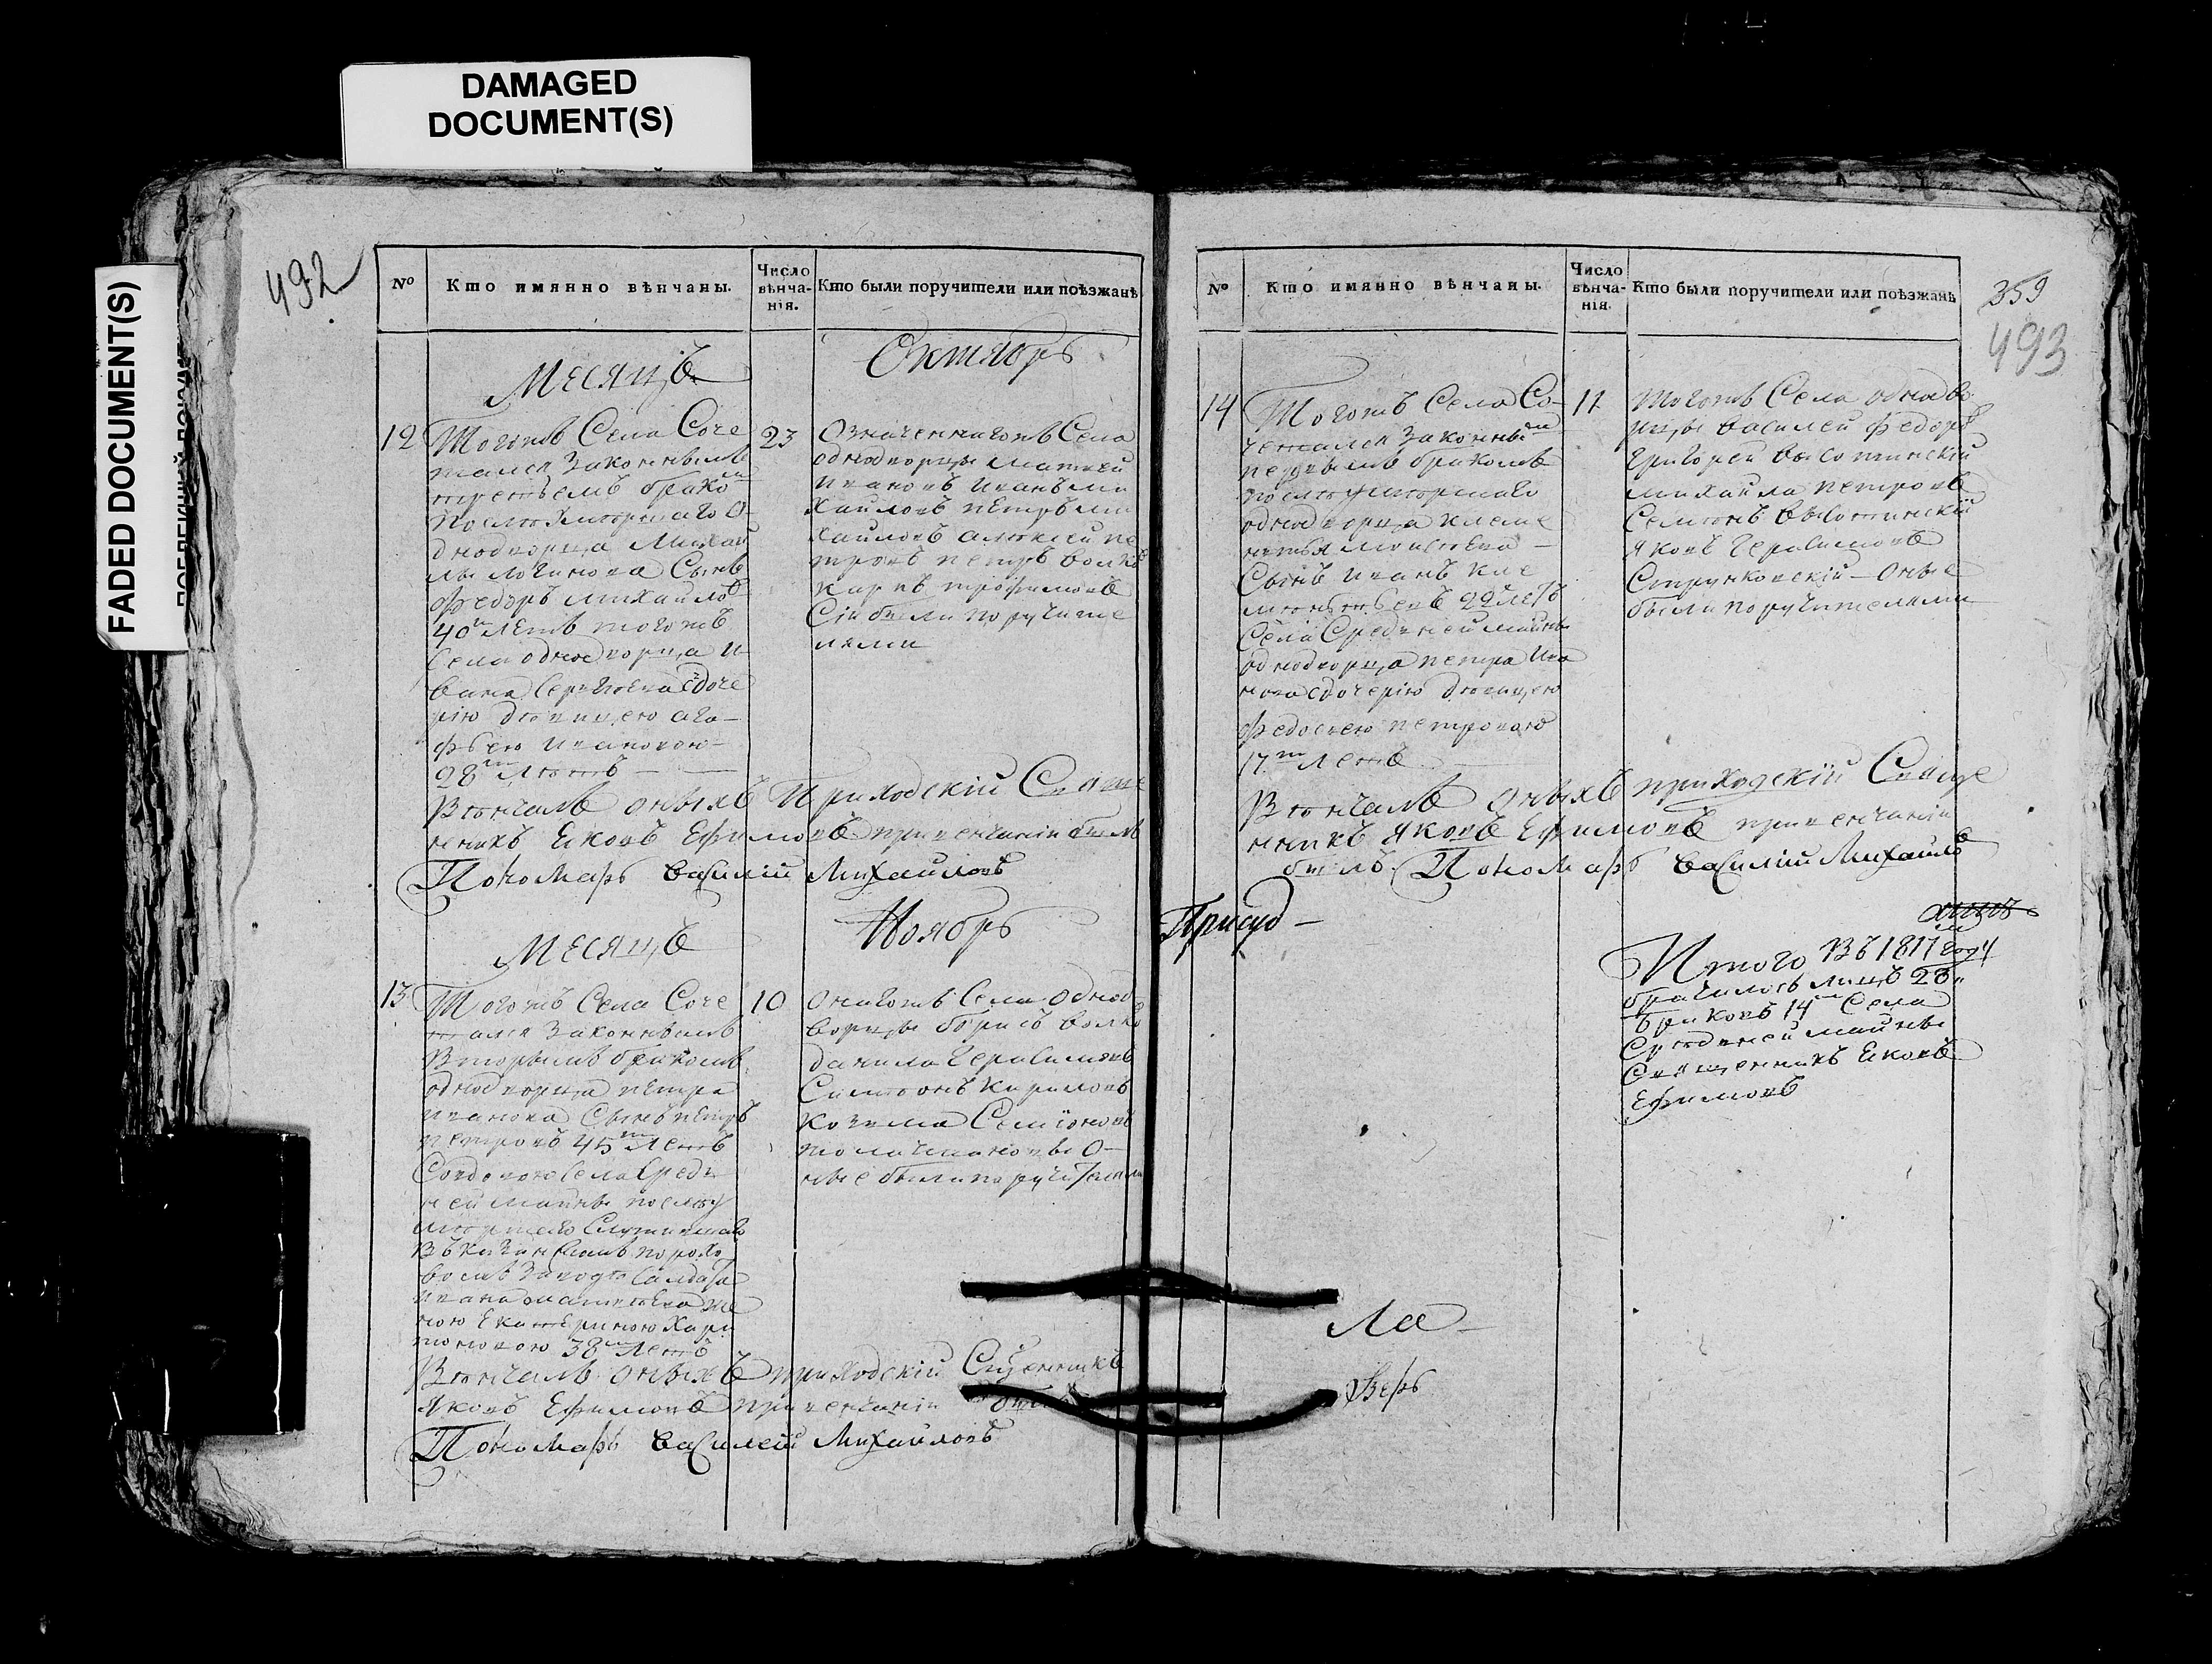 DAMAGED
DOCUMENT(S)
FADED DOCUMENT(S)
492
№
Кто имянно вѣнчаны.
Число вѣнча-нія.
Кто были поручители или поѣзжанѣ
Месяцъ
Октябрь
12
Тогожъ Села Соче
тался Законнымъ
третьемъ бракомъ
после умершаго о
днодворца Михаи
лы Логинова Сынъ
Федоръ Михайловъ
40ти Летъ тогожъ
Села однодворца И
вана Сергѣева здоче
рію девицею ага-
фьею ивановою
28ми Лѣтъ
23
Означеннагожъ Села
однодворцы матвей
ивановъ иванъ ми
хайловъ петръ ми
хайловъ алексей пе
тровъ петръ волковъ
карпъ трофимовъ
Сіи были поручите
лями
Вѣнчалъ оныхъ Приходскій Свяще
нникъ Ековъ Ефимовъ при венчаніи былъ
Пономарь Василій Михайловъ
Месяцъ
Ноябрь
13
Тогожъ Села Соче
тался Законнымъ
Вторымъ бракомъ
однодворца петра
иванова Сынъ петръ
петровъ 45ти Летъ
Совдовою Села Сред
ней майны послеу
мершаго Служившаго
Въ казанскомъ порохо
вомъ Заводѣ Салдата
ивана матвѣева же
ною Екатериною Хари
тоновою 38ми Летъ
10
Онагожъ Села однод
ворцы борисъ волковъ
данила герасимовъ
Симѣонъ кириловъ
козима Семіоновъ
О-
ные были поручителями
Вѣнчалъ оныхъ приходскій Сщенникъ
Яковъ Ефимовъ при венчаніи былъ
Пономарь Василей Михайловъ
359
493
№
Кто имянно вѣнчаны.
Число вѣнча-нія.
Кто были поручители или поѣзжанѣ
14
Тогожъ Села Со-
четался Законнымъ
первымъ бракомъ
послѣумершаго
однодворца клеме
нтья моисѣева
Сынъ иванъ кле
мѣнтьевъ 22 Летъ
Села Средней майны
однодворца петра Ива
нова здочерію девицею
федосьею петровою
17ти Летъ
11
Тогожъ Села однодво
рцы василей федоровъ
григорей высотинскій
михайла петровъ
Семѣонъ высотинскій
яковъ герасимовъ
Струнковскій - Оные
были поручителями
Вѣнчалъ оныхъ приходскій Свяще
нникъ Яковъ Ефимовъ при венчаніи
былъ Пономарь Василій Михайловъ
Присуд-
Итого Въ 1817м году
брачилось лицъ 28
браковъ 14ть Села
Средней майны
Священникъ Ековъ
Ефимовъ
Ла-
Верь